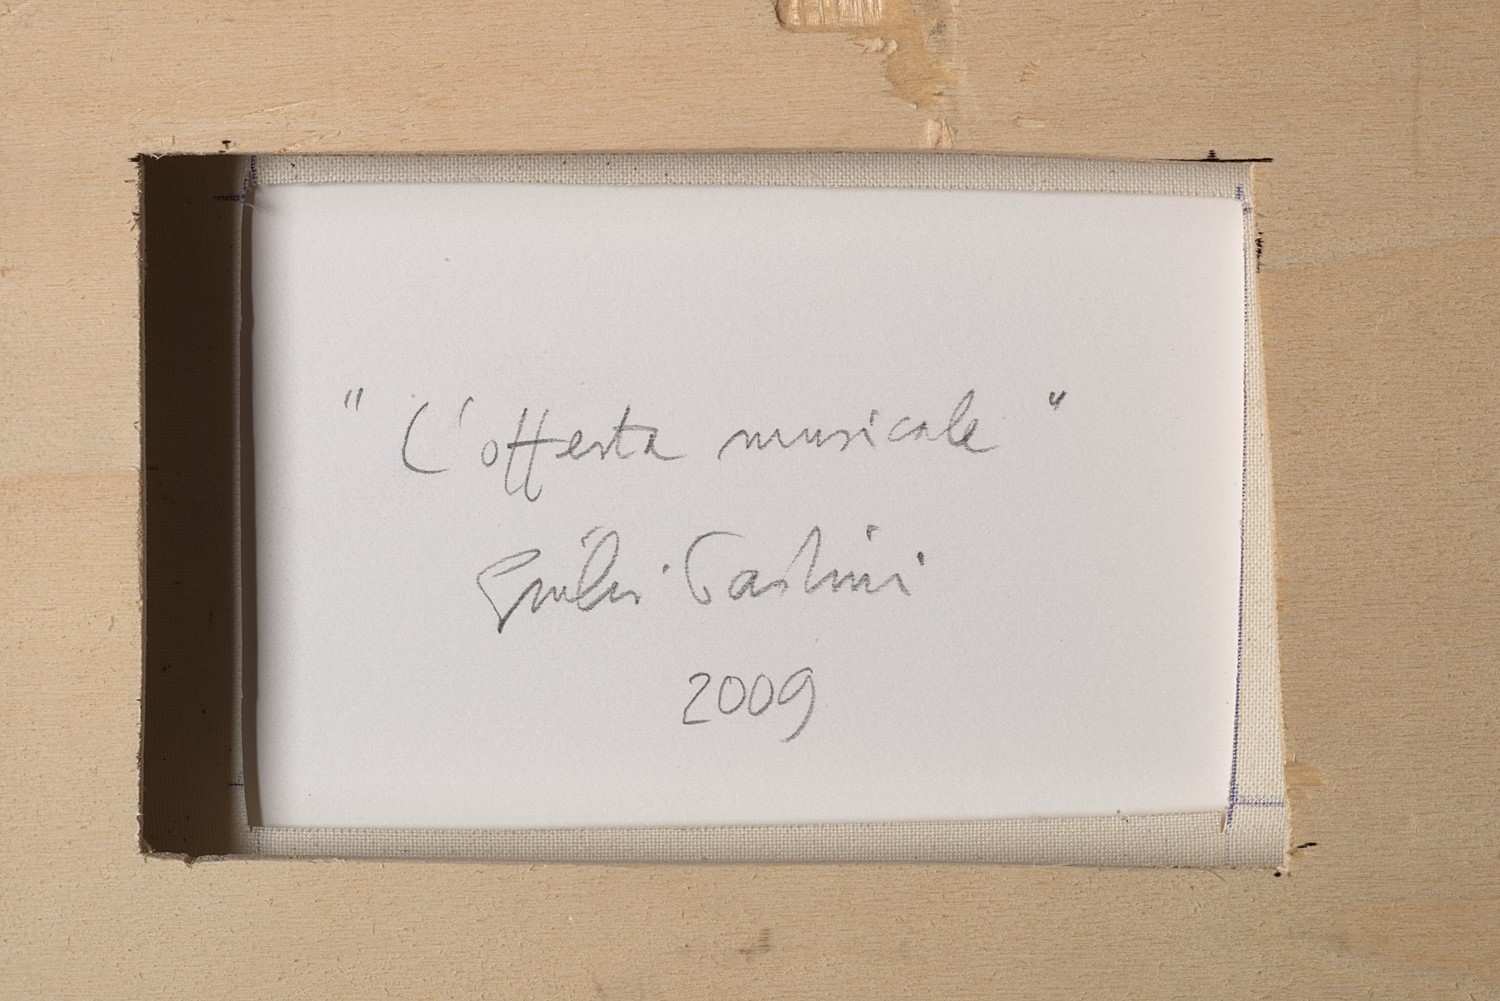 "L'offerta musicale"
Giulio Paolini
2009